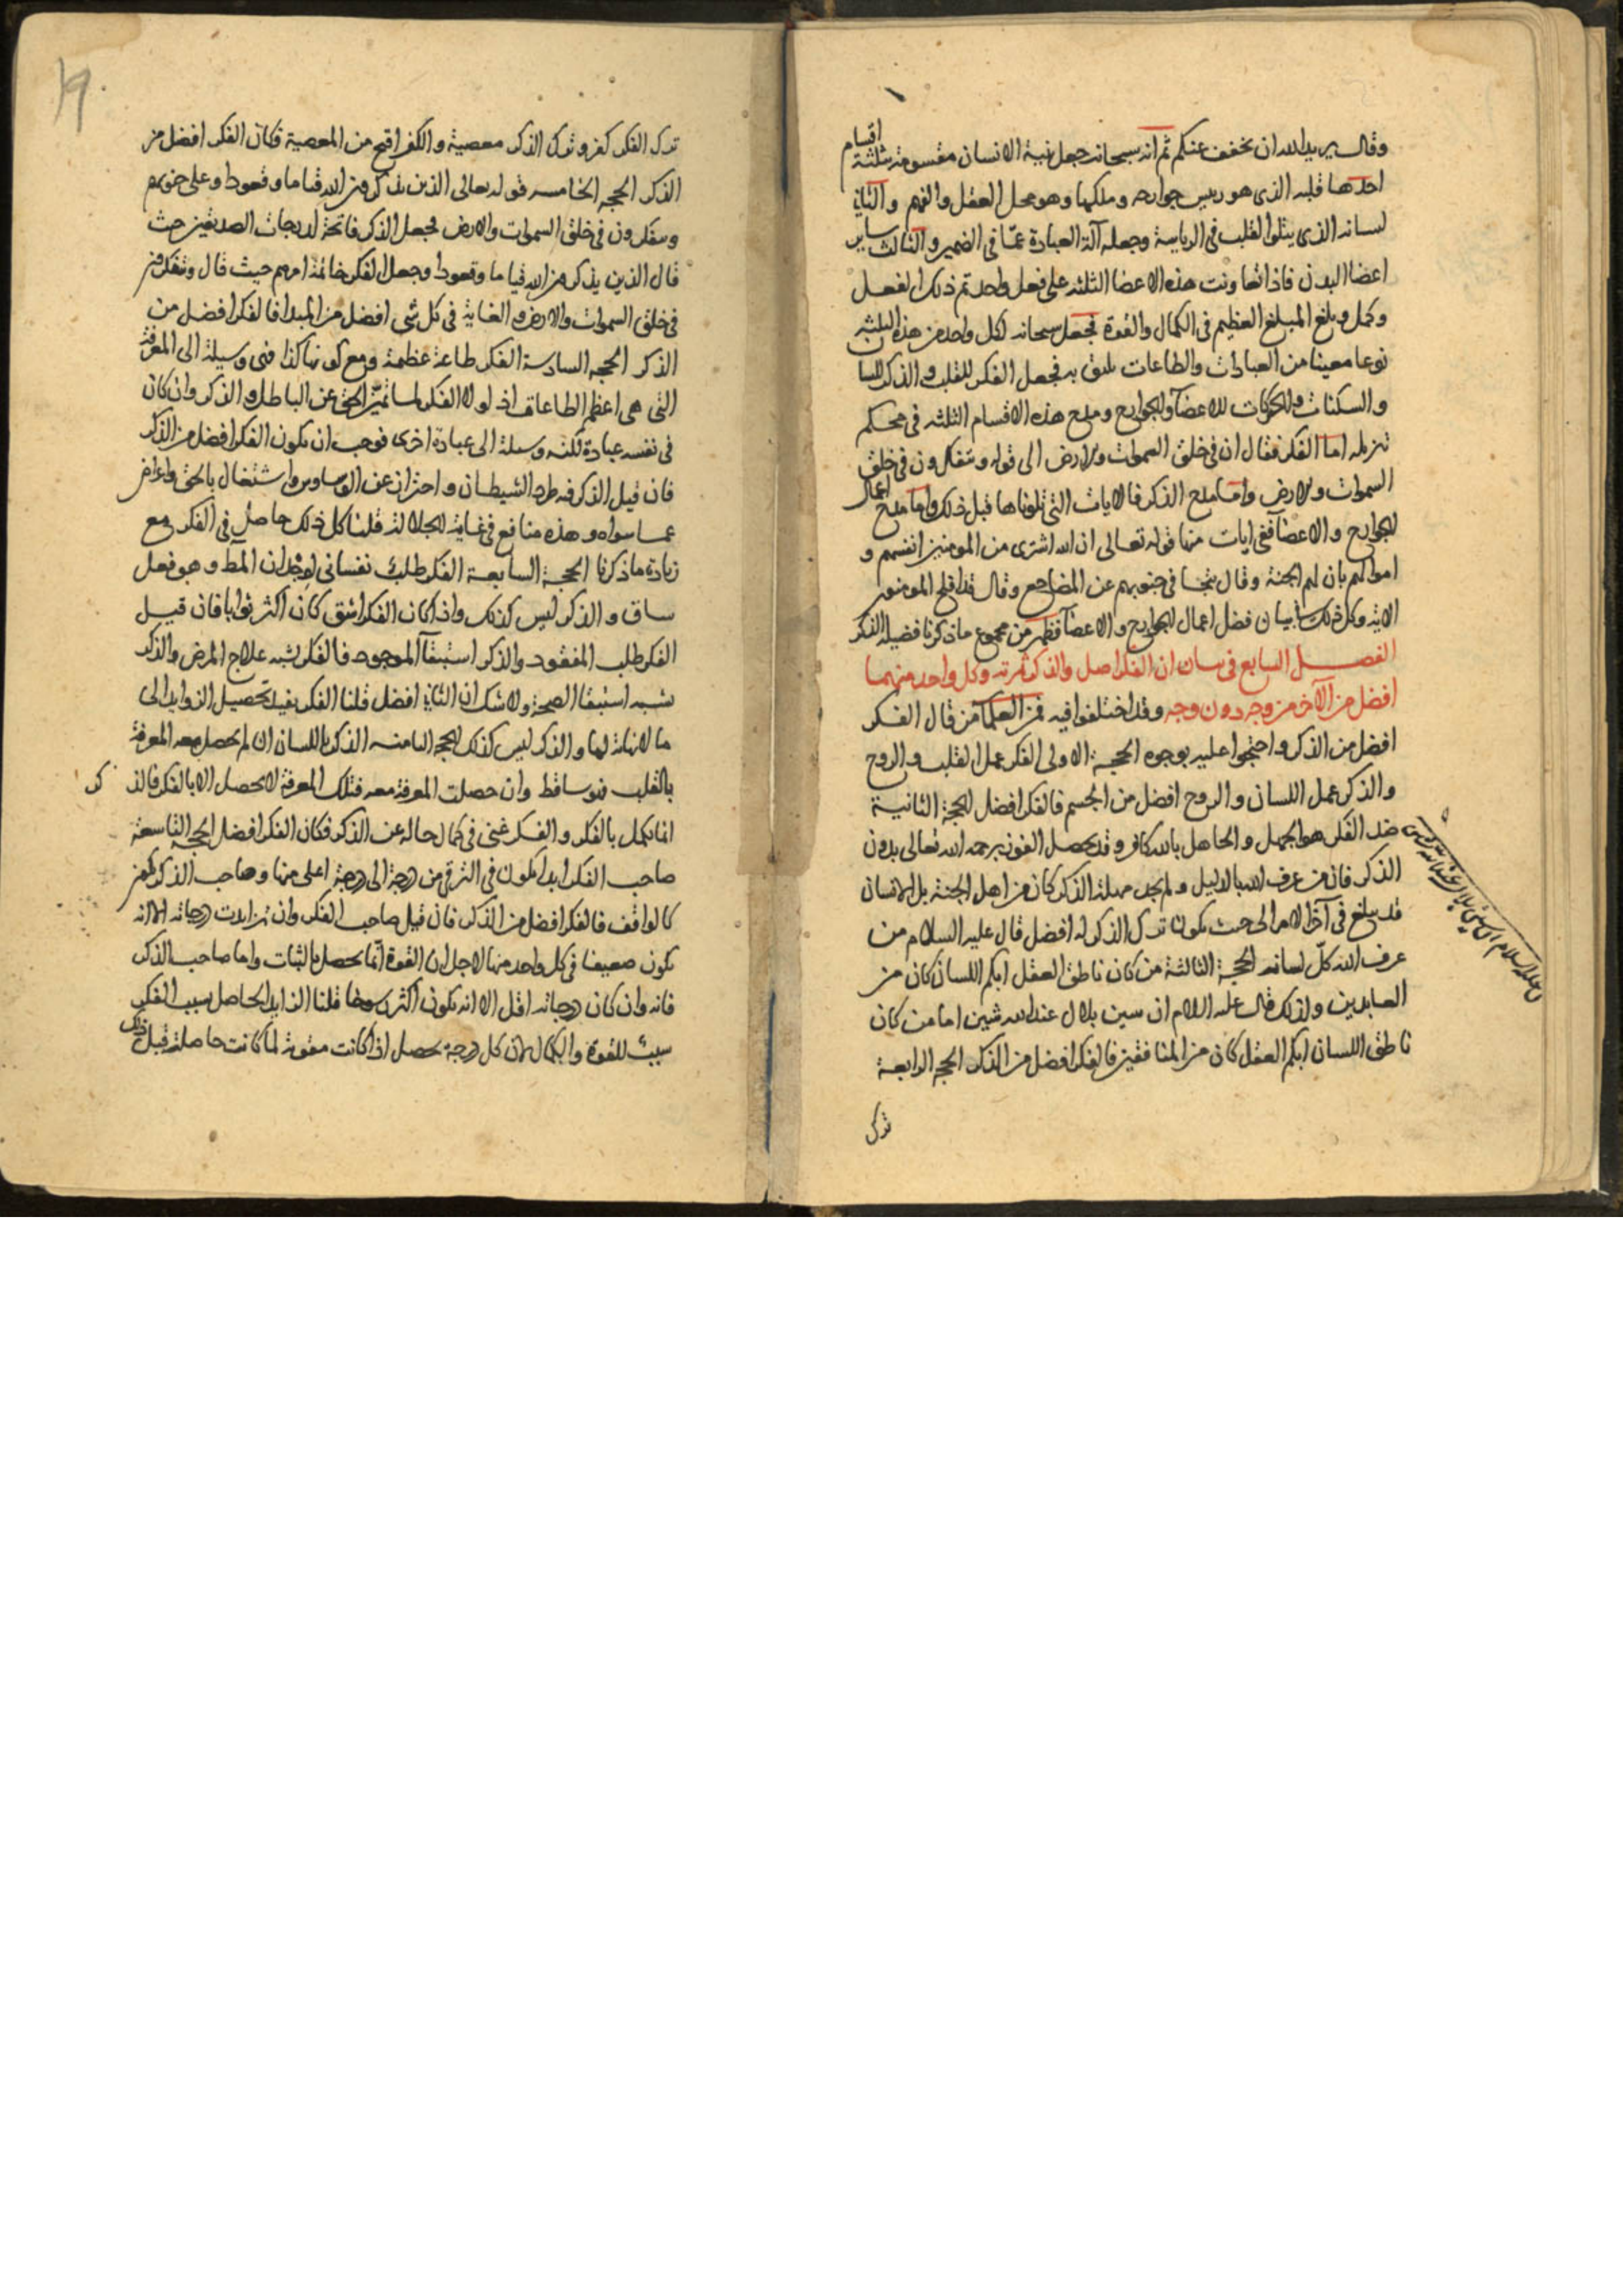 وقال يريد الله ان يخفف عنكم ثم انه سبحانه جعل بنية الانسان مقسومة بثلثة اقسام
احدها قلبه الذى هو رييس جوارحه وملكها وهو محل العقل والفهم والثانى
لسانه الذى يتلوا القلب فى الرياسة وجعله آلة العبادة عمّا فى الضمير والثالث ساير
اعضا البدن فاذا تعاونت هذه الاعضا الثلثه على فعل واحد تم ذلك الفعل
وكمل وبلغ المبلغ العظيم فى الكمال والقوة فجعل سبحانه لكل واحد من هذه الثلثه
نوعا معينا من العبادات والطاعات يليق به فجعل الفكر للقلب والذكر للسان
والسكنات والحركات للاعضآ والجوارح ومدح هذه الاقسام الثلثه فى محكم
تنزيله اما الفكر فقال ان فى خلق السموات والارض الى قوله ويتفكرون فى خلق
السموات والارض واما مدح الذكر فالايات التى تلوناها قبل ذلك واما مدح اعمال
الجوارح والاعضآ ففى ايات منها قوله تعالى ان الله اشترى من المومنين انفسهم و
اموالهم بان لهم الجنة وقال تتجافى جنوبهم عن المضاجع وقال قد افلح المومنون
الاية وكل ذلك بيان فضل اعمال الجوارح والاعضآ فظهر من مجموع ما ذكرنا فضيلة الفكر
الفصل السابع فى بيان ان الفكر اصل والذكر ثمرته وكل واحد منهما
افضل من الآخر من وجه دون وجه وقد اختلفوا فيه فمن العلمآ من قال الفكر
افضل من الذكر واحتجوا عليه بوجوه الحجة الاولى الفكر عمل القلب والروح
والذكر عمل اللسان والروح افضل من الجسم فالفكر افضل الحجة الثانية
ضد الفكر هو الجهل والجاهل بالله كافر وقد يحصل الفوز برحمة الله تعالى بدون
الذكر فان من عرف الله بالدليل ولم يجد مهلة الذكر كان من اهل الجنة بل الانسان
قد يبلغ فى آخر الامر الى حيث يكون ترك الذكر له افضل قال عليه السلام من
عرف الله كلّ لسانه الحجة الثالثة من كان ناطق العقل ابكم اللسان كان من
العابدين ولذلك قال عليه السلام ان سين بلال عند الله شين اما من كان
ناطق اللسان ابكم العقل كان من المنافقين فالفكر افضل من الذكر الحجه الرابعة
ترك
ترك الفكر كفر وترك الذكر معصية والكفر اقبح من المعصية فكان الفكر افضل من
الذكر الحجه الخامسه قوله تعالى الذين يذكرون الله قياما وقعودا وعلى جنوبهم
ويتفكرون فى خلق السموات والارض فجعل الذكر فاتحة لدرجات الصديقين حيث
قال الذين يذكرون الله قياما وقعودا وجعل الفكر خاتمة امرهم حيث قال ويتفكرون
فى خلق السموات والارض والغاية فى كل شى افضل من المبدا فالفكر افضل من
الذكر الحجه السادسة الفكر طاعة عظيمة ومع كونها كذا فهى وسيلة الى المعرفة
التى هى اعظم الطاعات اذ لولا الفكر لما تميّز الحق عن الباطل والذكر وان كان
فى نفسه عبادة لكنه وسيلة الى عبادة اخرى فوجب ان يكون الفكر افضل من الذكر
فان قيل الذكر فيه طرد الشيطان واحتراز عن الوساوس واشتغال بالحق واعراض
عما سواه وهذه منافع فى غاية الجلالة قلنا كل ذلك حاصل فى الفكر مع
زيادة ما ذكرنا الحجة السابعة الفكر طلب نفسانى لوجدان المط وهو فعل
شاق والذكر ليس كذلك واذا كان الفكر اشق كان اكثر ثوابا فان قيل
الفكر طلب المفقود والذكر استبقآ الموجود فالفكر يشبه علاج المرض والذكر
يشبه استبقا الصحة ولا شك ان الثانى افضل قلنا الفكر يفيد تحصيل الزوايد الى
ما لا نهاية لها والذكر ليس كذلك الحجة الثامنه الذكر باللسان ان لم يحصل معه المعرفة
بالقلب فهو ساقط وان حصلت المعرفة معه فتلك المعرفة لا تحصل الا بالفكر فالذكر
انما يكمل بالفكر والفكر غنى فى كمال حاله عن الذكر فكان الفكر افضل الحجة التاسعة
صاحب الفكر ابدا يكون فى الترقى من درجة الى درجة اعلى منها وصاحب الذكر يكون
كالواقف فالفكر افضل من الذكر فان قيل صاحب الفكر وان تزايدت درجاته الا انه
يكون ضعيفا فى كل واحد منها لاجل ان القوة انّما يحصل بالثبات واما صاحب الذكر
فانه وان كان درجاته اقل الا انه يكون اكثر رسوخا قلنا الزايد الحاصل بسبب الفكر
سبب للقوة والكمال لان كل درجة يحصل اذا كانت مقوية لما كانت حاصلة قبل ذلك